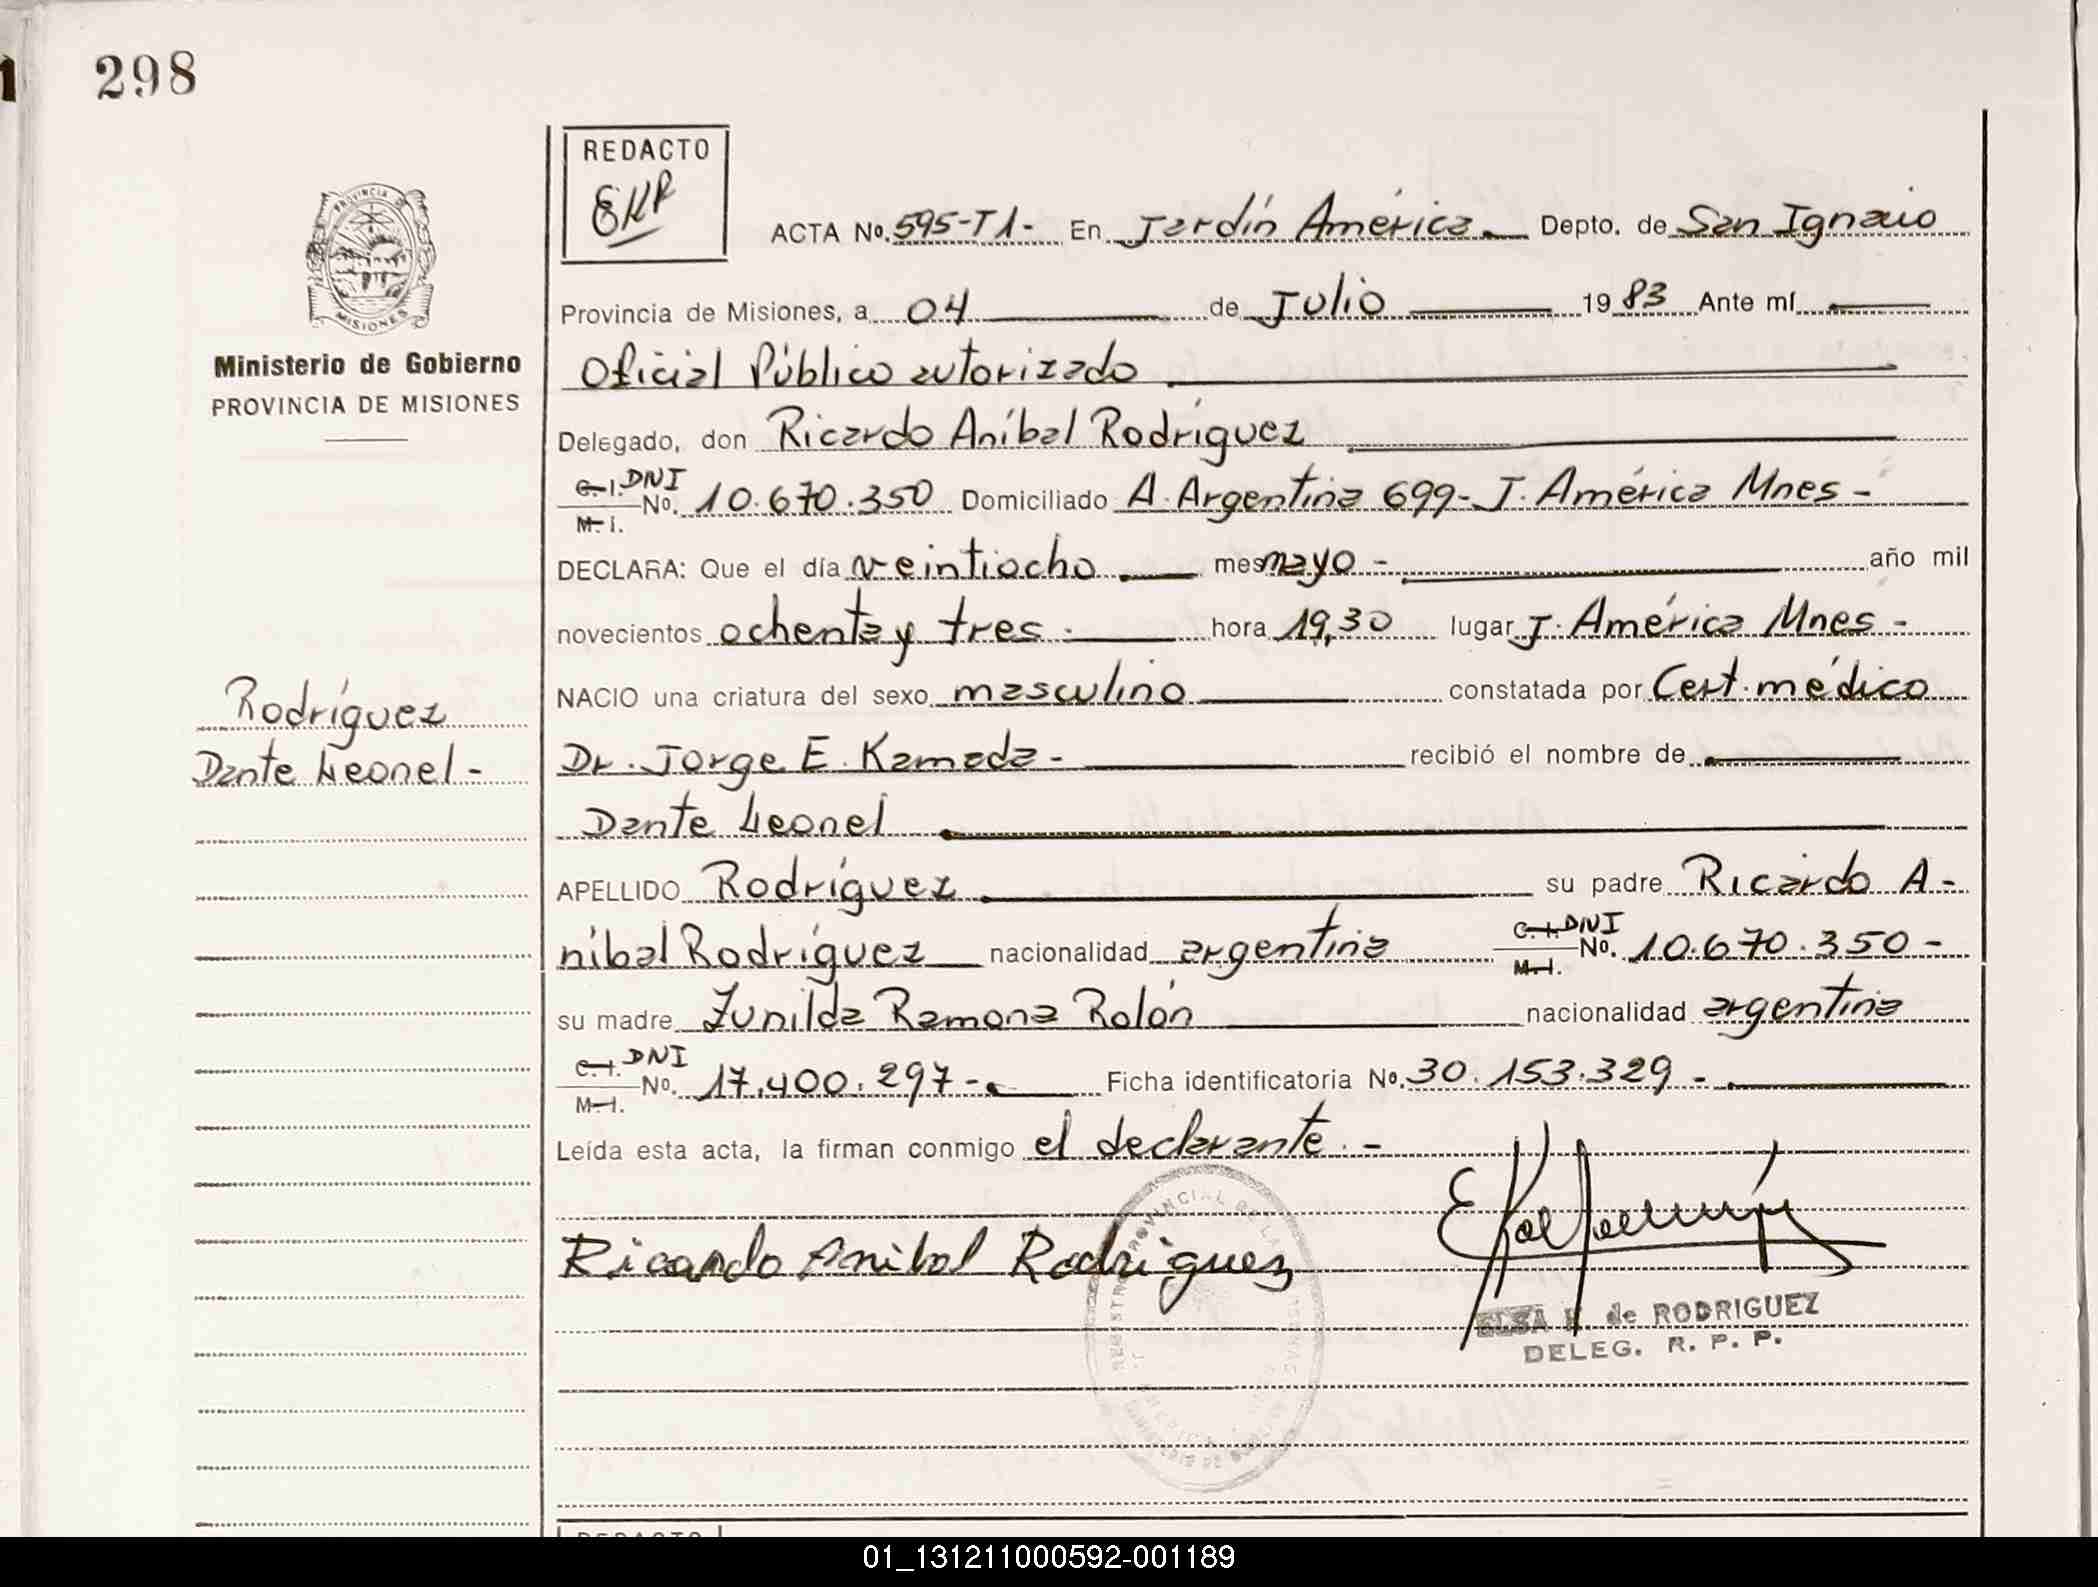 1
298
REDACTO
EKR
ACTA Nº. 595-T1- En Jardín América Depto. de San Ignacio
Provincia de Misiones, a 04 de Julio 1983 Ante mí
Ministerio de Gobierno
PROVINCIA DE MISIONES
Oficial Público autorizado
Delegado, don Ricardo Aníbal Rodríguez
C.I. DNI
M.I. Nº. 10.670.350 Domiciliado A. Argentina 699- J. América Mnes-
DECLARA: Que el día veintiocho mes mayo - año mil
novecientos ochenta y tres. hora 19,30 lugar J. América Mnes -
NACIO una criatura del sexo masculino constatada por Cert. médico
Rodríguez
Dante Leonel-
Dr. Jorge E. Kamada - recibió el nombre de
Dante Leonel
APELLIDO Rodríguez su padre Ricardo A-
níbal Rodríguez nacionalidad argentina C.I. DNI M.I. Nº. 10.670.350-
su madre Zunilda Ramona Rolón nacionalidad argentina
C.I. DNI
M.I. Nº. 17.400.297- Ficha identificatoria Nº. 30.153.329 -
Leída esta acta, la firman conmigo el declarante. -
Ricardo Anibal Rodriguez
ELSA K. de RODRIGUEZ
DELEG. R. P. P.
REDACTO
01_131211000592-001189